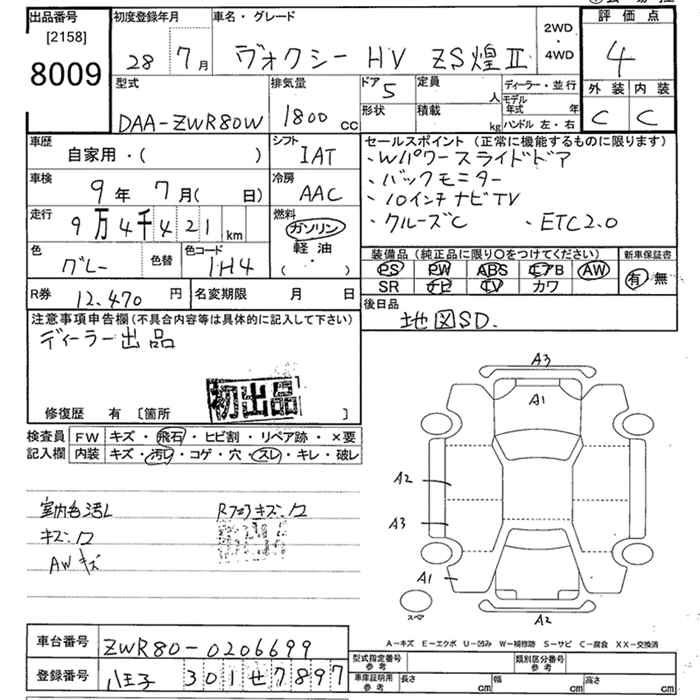 出品番号
[2158]
8009
初度登録年月
28年 7月
車名・グレード
ヴォクシー HV ZS煌Ⅱ
2WD
・
4WD
評価点
4
外装 内装
C C
型式
DAA-ZWR80W
排気量
1800 cc
ドア
5
形状
定員
人
積載
kg
ディーラー・並行
モデル年式 年
ハンドル 左・右
車歴
自家用・( )
シフト
IAT
車検
9年 7月( 日)
冷房
AAC
走行
9万4千421km
燃料
ガソリン
軽油
( )
色
グレー
色替
色コード
1H4
R券
12,470 円
名変期限 月 日
セールスポイント (正常に機能するものに限ります)
・Wパワースライドドア
・バックモニター
・10インチナビTV
・クルーズC ・ETC2.0
装備品 (純正品に限り○をつけてください)
PS PW ABS エアB AW
SR ナビ TV カワ
新車保証書
有・無
後日品
地図SD.
注意事項申告欄(不具合内容等は具体的に記入して下さい)
ディーラー出品
初出品
修復歴 有 [箇所 ]
検査員
記入欄
FW キズ・飛石・ヒビ割・リペア跡・×要
内装 キズ・汚レ・コゲ・穴・スレ・キレ・破レ
室内色汚レ
キズ、ワ
AWキズ
Rフロアキズ、ワ
A3
A1
A2
A3
A1
A2
スペア
A-キズ E-エクボ U-凹み W-補修跡 S-サビ C-腐食 XX-交換済
車台番号
ZWR80-0206699
登録番号
八王子 301せ7897
型式指定番号
参考
類別区分番号
参考
車庫証明用
参考
長さ cm
幅 cm
高さ cm